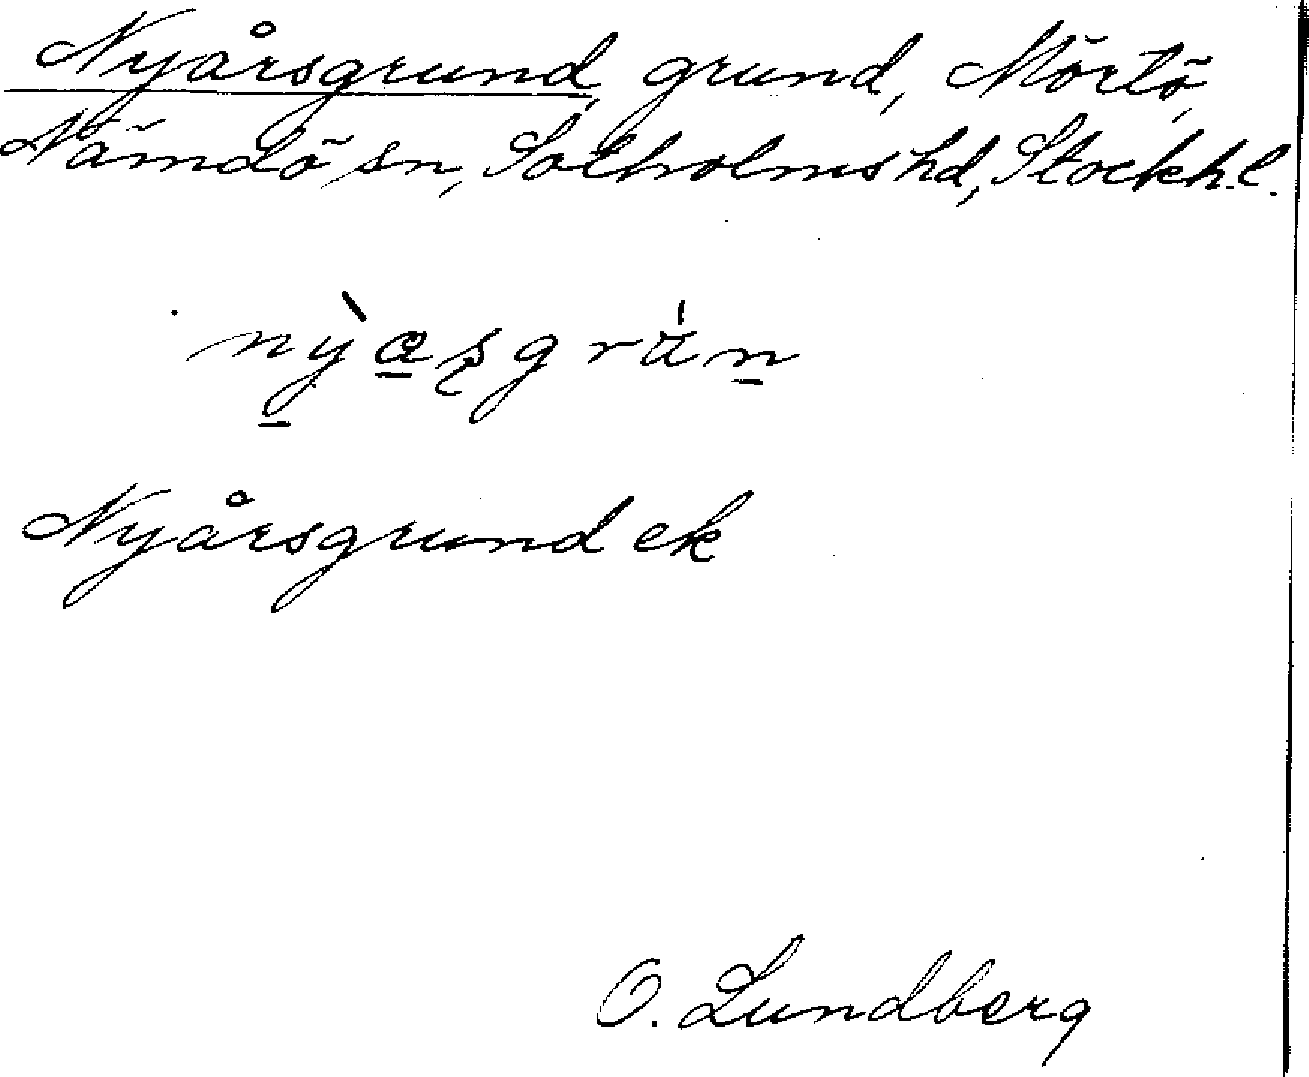 Nyårsgrund, grund, Mörtö,
Nämdö sn, Sotholms hd, Stockh. l.
Nyårsgrund ek
O. Lundberg